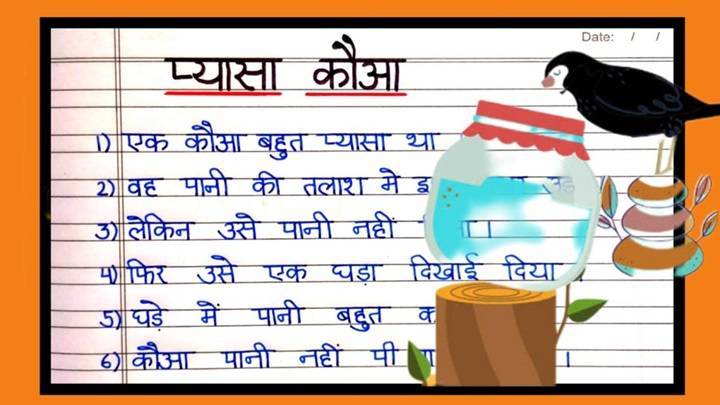 Date: / /
प्यासा कौआ
1) एक कौआ बहुत प्यासा था
2) वह पानी की तलाश मे
3) लेकिन उसे पानी नहीं
4) फिर उसे एक घड़ा दिखाई दिया
5) घड़े में पानी बहुत
6) कौआ पानी नहीं पी